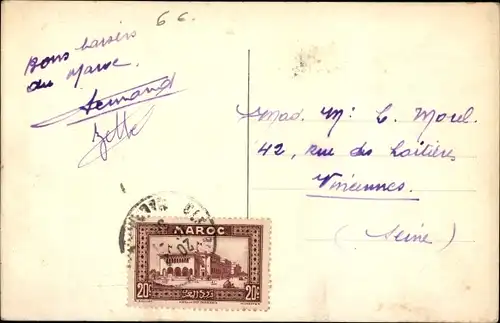 6 c.
Bons baisers
du Maroc.
Fernand
Zette
Mad. M: L. Morel.
42, rue des Laitières
Vincennes
(Seine)
MAROC
20c 20c